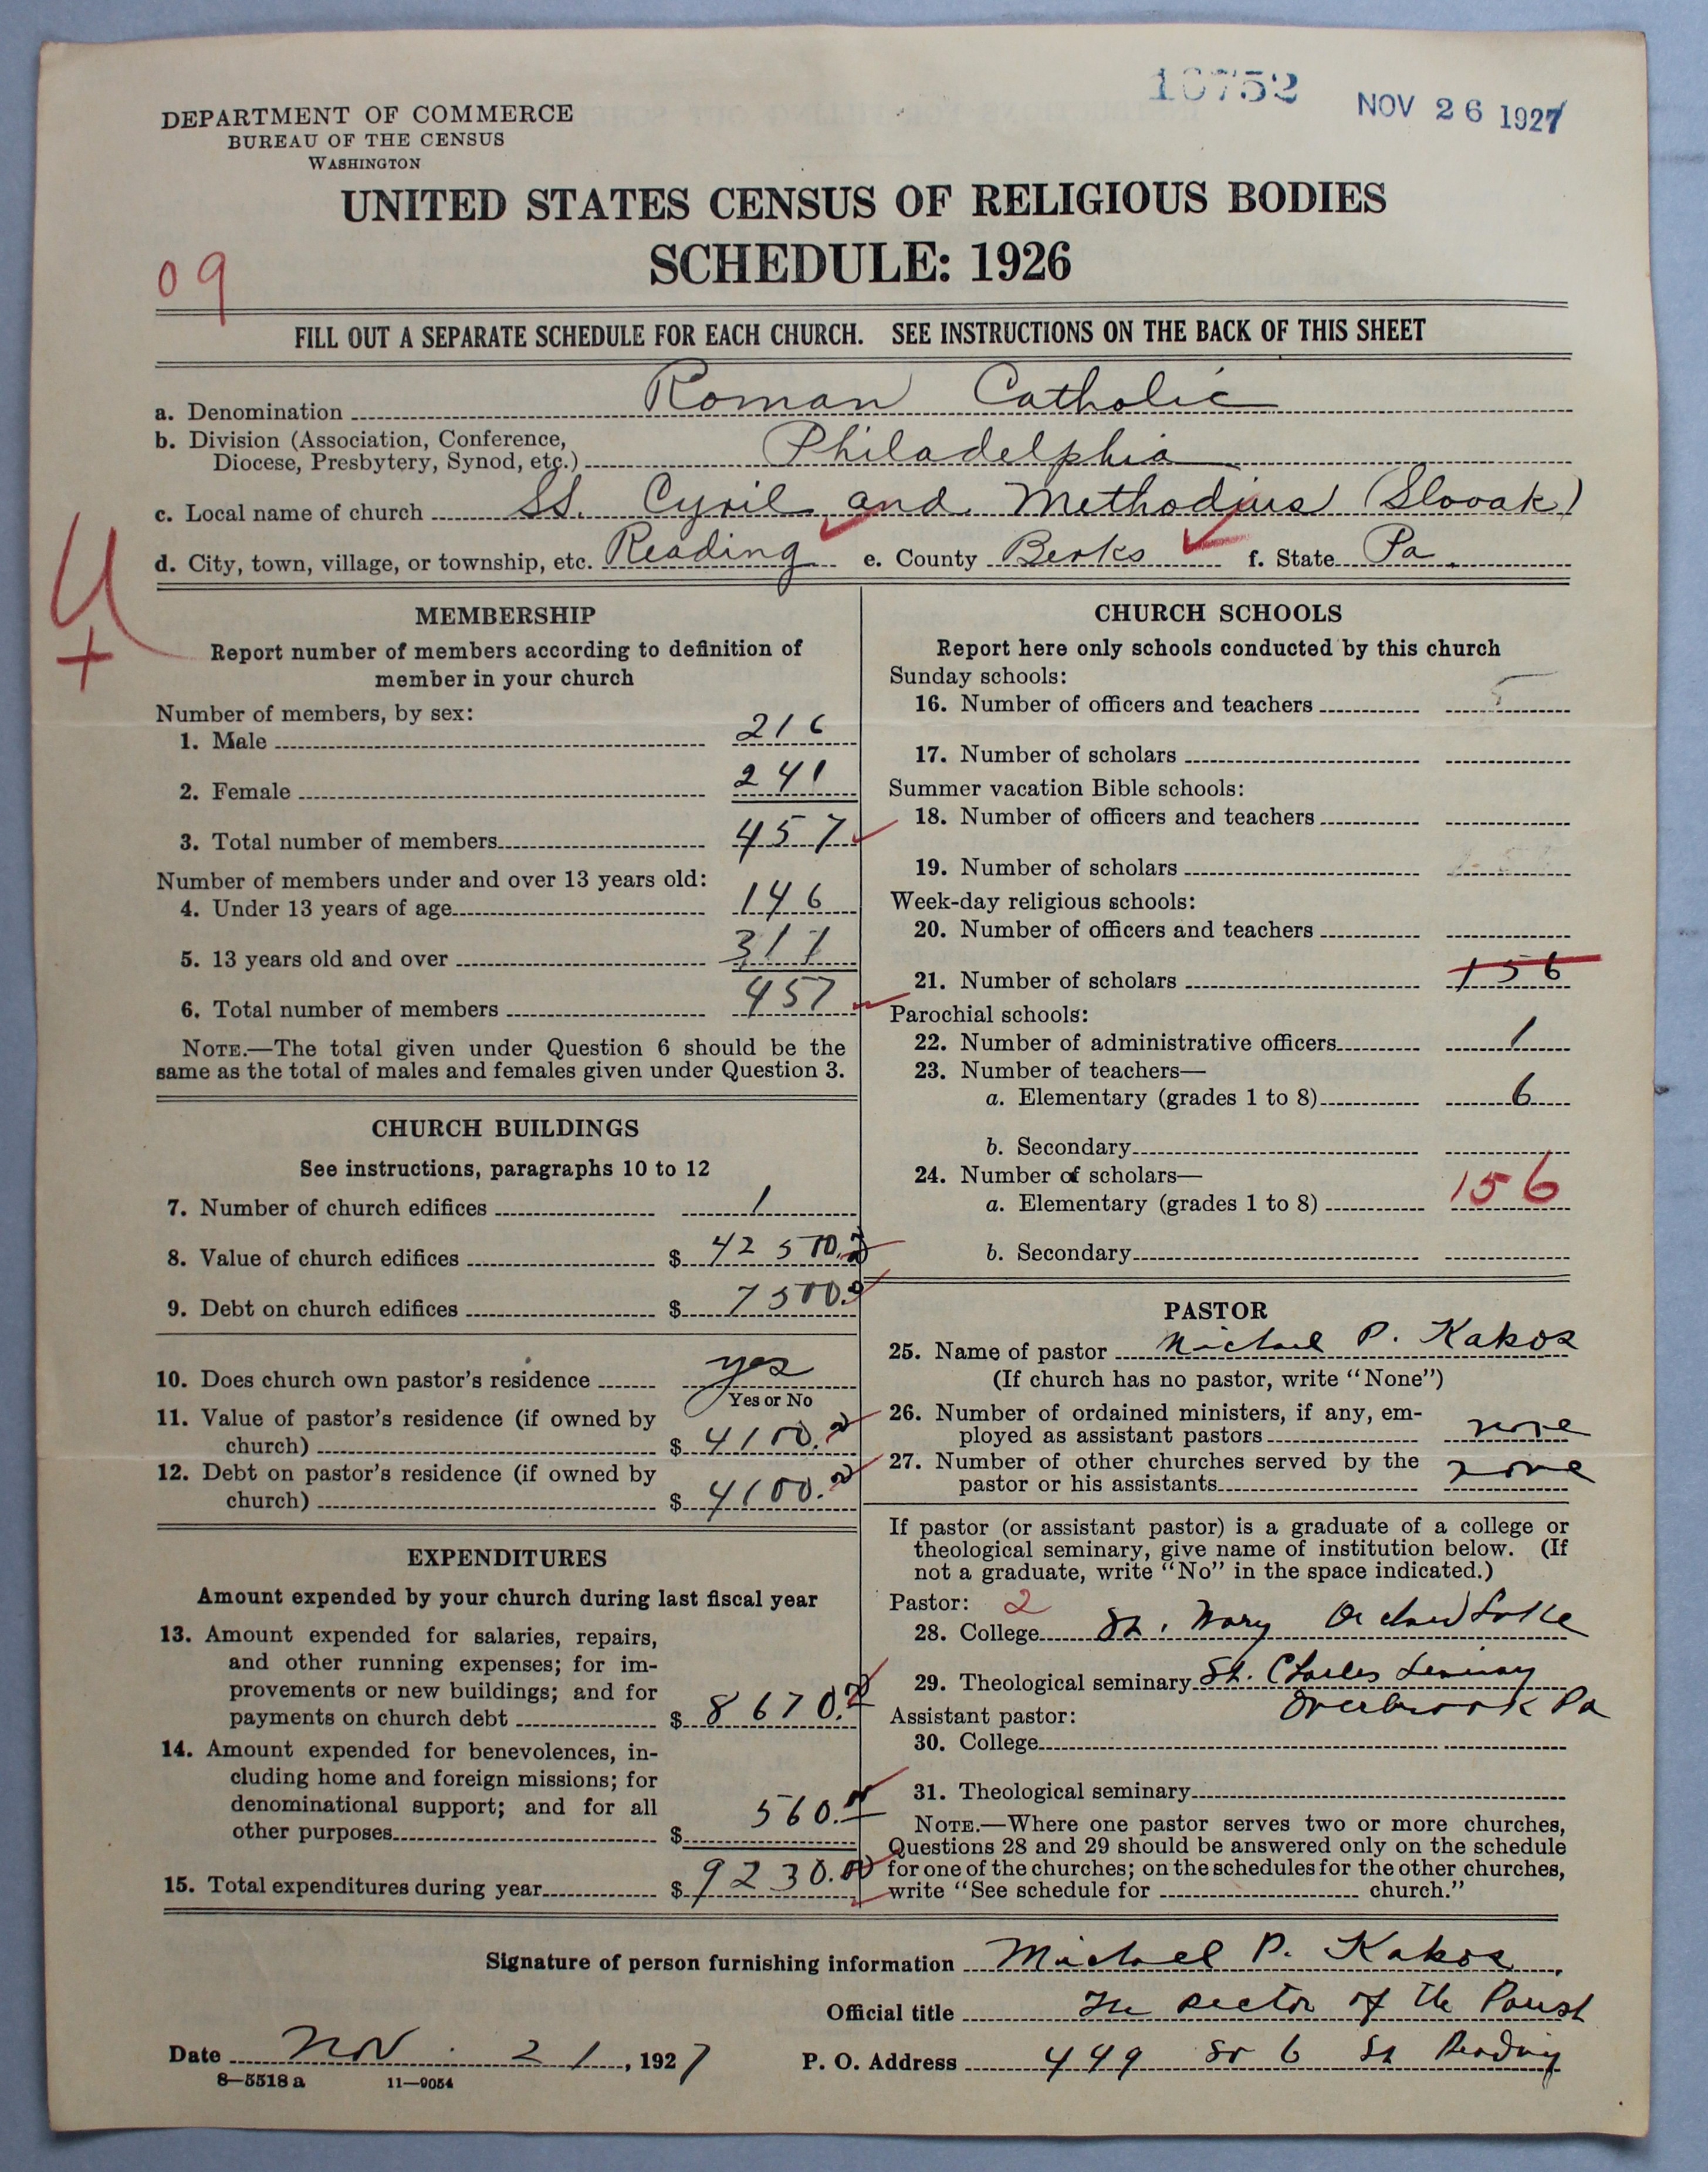 10752
NOV 26 1927
DEPARTMENT OF COMMERCE
BUREAU OF THE CENSUS
WASHINGTON
UNITED STATES CENSUS OF RELIGIOUS BODIES
SCHEDULE: 1926
09
FILL OUT A SEPARATE SCHEDULE FOR EACH CHURCH. SEE INSTRUCTIONS ON THE BACK OF THIS SHEET
a. Denomination Roman Catholic
b. Division (Association, Conference,
Diocese, Presbytery, Synod, etc.) Philadelphia
c. Local name of church SS. Cyril and Methodius (Slovak)
d. City, town, village, or township, etc. Reading e. County Berks f. State Pa.
MEMBERSHIP
Report number of members according to definition of
member in your church
Number of members, by sex:
1. Male 216
2. Female 241
3. Total number of members 457
Number of members under and over 13 years old:
4. Under 13 years of age 146
5. 13 years old and over 311
6. Total number of members 457
NOTE.—The total given under Question 6 should be the
same as the total of males and females given under Question 3.
CHURCH BUILDINGS
See instructions, paragraphs 10 to 12
7. Number of church edifices 1
8. Value of church edifices $ 42500.00
9. Debt on church edifices $ 7500.00
10. Does church own pastor's residence yes
Yes or No
11. Value of pastor's residence (if owned by
church) $ 4100.00
12. Debt on pastor's residence (if owned by
church) $ 4100.00
EXPENDITURES
Amount expended by your church during last fiscal year
13. Amount expended for salaries, repairs,
and other running expenses; for im-
provements or new buildings; and for
payments on church debt $ 8670.00
14. Amount expended for benevolences, in-
cluding home and foreign missions; for
denominational support; and for all
other purposes $ 560.00
15. Total expenditures during year $ 9230.00
CHURCH SCHOOLS
Report here only schools conducted by this church
Sunday schools:
16. Number of officers and teachers
17. Number of scholars
Summer vacation Bible schools:
18. Number of officers and teachers
19. Number of scholars
Week-day religious schools:
20. Number of officers and teachers
21. Number of scholars 156
Parochial schools:
22. Number of administrative officers 1
23. Number of teachers—
a. Elementary (grades 1 to 8) 6
b. Secondary
24. Number of scholars—
a. Elementary (grades 1 to 8) 156
b. Secondary
PASTOR
25. Name of pastor Michael P. Kakos
(If church has no pastor, write "None")
26. Number of ordained ministers, if any, em-
ployed as assistant pastors none
27. Number of other churches served by the
pastor or his assistants none
If pastor (or assistant pastor) is a graduate of a college or
theological seminary, give name of institution below. (If
not a graduate, write "No" in the space indicated.)
Pastor: 2
28. College St. Mary Orchard Lake
29. Theological seminary St. Charles Seminary
Overbrook Pa
Assistant pastor:
30. College
31. Theological seminary
NOTE.—Where one pastor serves two or more churches,
Questions 28 and 29 should be answered only on the schedule
for one of the churches; on the schedules for the other churches,
write "See schedule for church."
Signature of person furnishing information Michael P. Kakos
Official title The rector of the Parish
Date Nov. 21, 1927 P. O. Address 449 So 6 St Reading
8—5518 a 11—9054